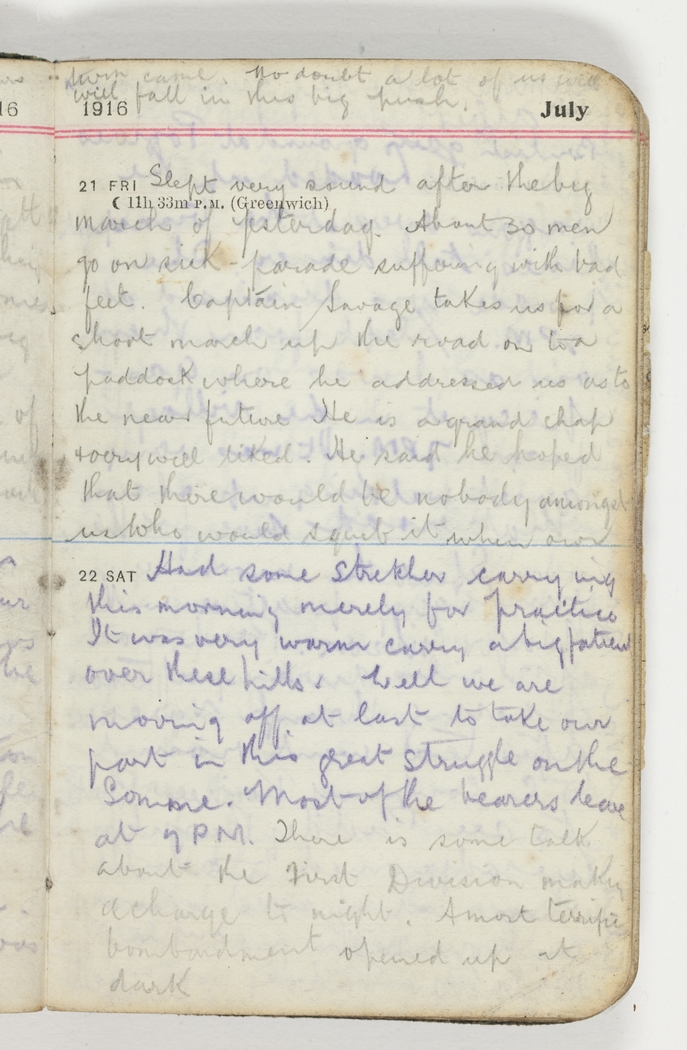 turn came. No doubt a lot of us will
will fall in this big push.
16
1916 July
21 FRI Slept very sound after the big
☾ 11h 33m P.M. (Greenwich)
march of yesterday. About 30 men
go on sick-parade suffering with bad
feet. Captain Savage takes us for a
short march up the road on to a
paddock where he addressed us as to
the near future He is a grand chap
& very well liked. He said he hoped
that there would be nobody amongst
us who would squib it when our
22 SAT Had some stretcher carrying
this morning merely for practice
It was very warm carry a big patient
over these hills. Well we are
moving off at last to take our
part in this great struggle on the
Somme. Most of the bearers leave
at 9 P.M. There is some talk
about the First Division making
a charge to night. A most terrific
bombardment opened up at
dark